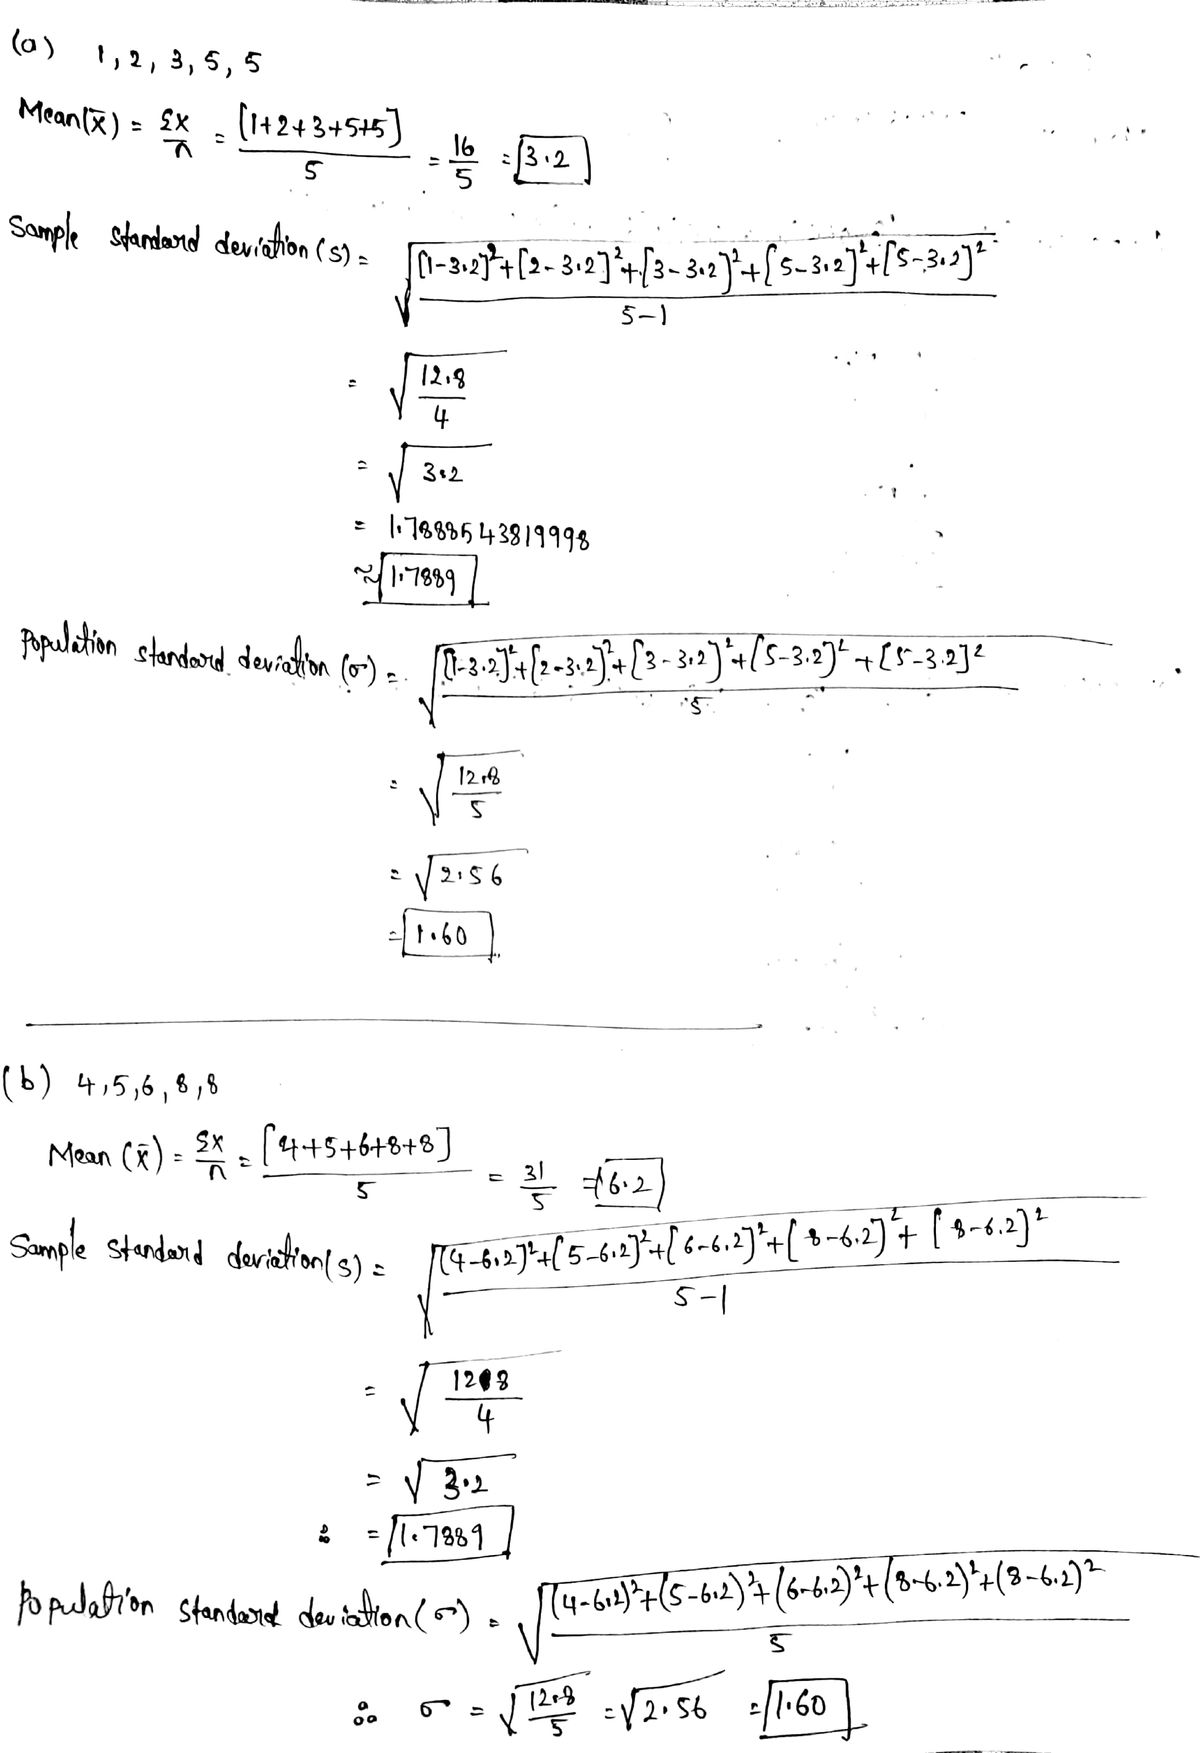 (a) 1, 2, 3, 5, 5
Mean(x̄) = Σx/n = [1+2+3+5+5]/5 = 16/5 = 3.2
Sample standard deviation (s) = √([1-3.2]²+[2-3.2]²+[3-3.2]²+[5-3.2]²+[5-3.2]²/5-1)
= √(12.8/4)
= √3.2
= 1.78885543819998
≈ 1.7889
Population standard deviation (σ) = √([1-3.2]²+[2-3.2]²+[3-3.2]²+[5-3.2]²+[5-3.2]²/5)
= √(12.8/5)
= √2.56
= 1.60
(b) 4, 5, 6, 8, 8
Mean (x̄) = Σx/n = [4+5+6+8+8]/5 = 31/5 = 6.2
Sample standard deviation(s) = √([4-6.2]²+[5-6.2]²+[6-6.2]²+[8-6.2]²+[8-6.2]²/5-1)
= √(12.8/4)
= √3.2
= 1.7889
Population standard deviation(σ) = √((4-6.2)²+(5-6.2)²+(6-6.2)²+(8-6.2)²+(8-6.2)²/5)
∴ σ = √(12.8/5) = √2.56 = 1.60